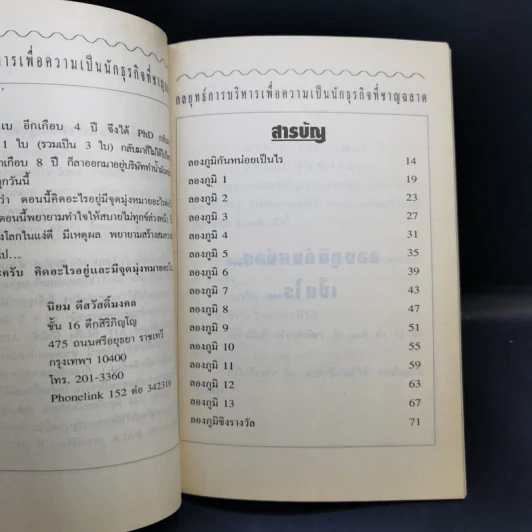 ารเพื่อความเป็นนักธุรกิจที่ชาญฉลาด
เบ อีกเกือบ 4 ปี จึงได้ PhD กลับ
1 ใบ (รวมเป็น 3 ใบ)
เกือบ 8 ปี ก็ลาออกมาอยู่บริษัททำน้ำมัน
ทุกวันนี้
ว่า ตอนนี้คิดอะไรอยู่มีจุดมุ่งหมายอะไร
ตอนนี้พยายามทำใจให้สบายไม่ทุกข์ล่วงหน้า
งโลกในแง่ดี มีเหตุผล พยายามสร้าง
ไป...
ะครับ คิดอะไรอยู่และมีจุดมุ่งหมายอะไร
นิยม ดีสวัสดิ์มงคล
ชั้น 16 ตึกสิริภิญโญ
475 ถนนศรีอยุธยา ราชเทวี
กรุงเทพฯ 10400
โทร. 201-3360
Phonelink 152 ต่อ 342316
กลยุทธ์การบริหารเพื่อความเป็นนักธุรกิจที่ชาญฉลาด
สารบัญ
ลองภูมิกันหน่อยเป็นไร 14
ลองภูมิ 1 19
ลองภูมิ 2 23
ลองภูมิ 3 27
ลองภูมิ 4 31
ลองภูมิ 5 35
ลองภูมิ 6 39
ลองภูมิ 7 43
ลองภูมิ 8 47
ลองภูมิ 9 51
ลองภูมิ 10 55
ลองภูมิ 11 59
ลองภูมิ 12 63
ลองภูมิ 13 67
ลองภูมิชิงรางวัล 71